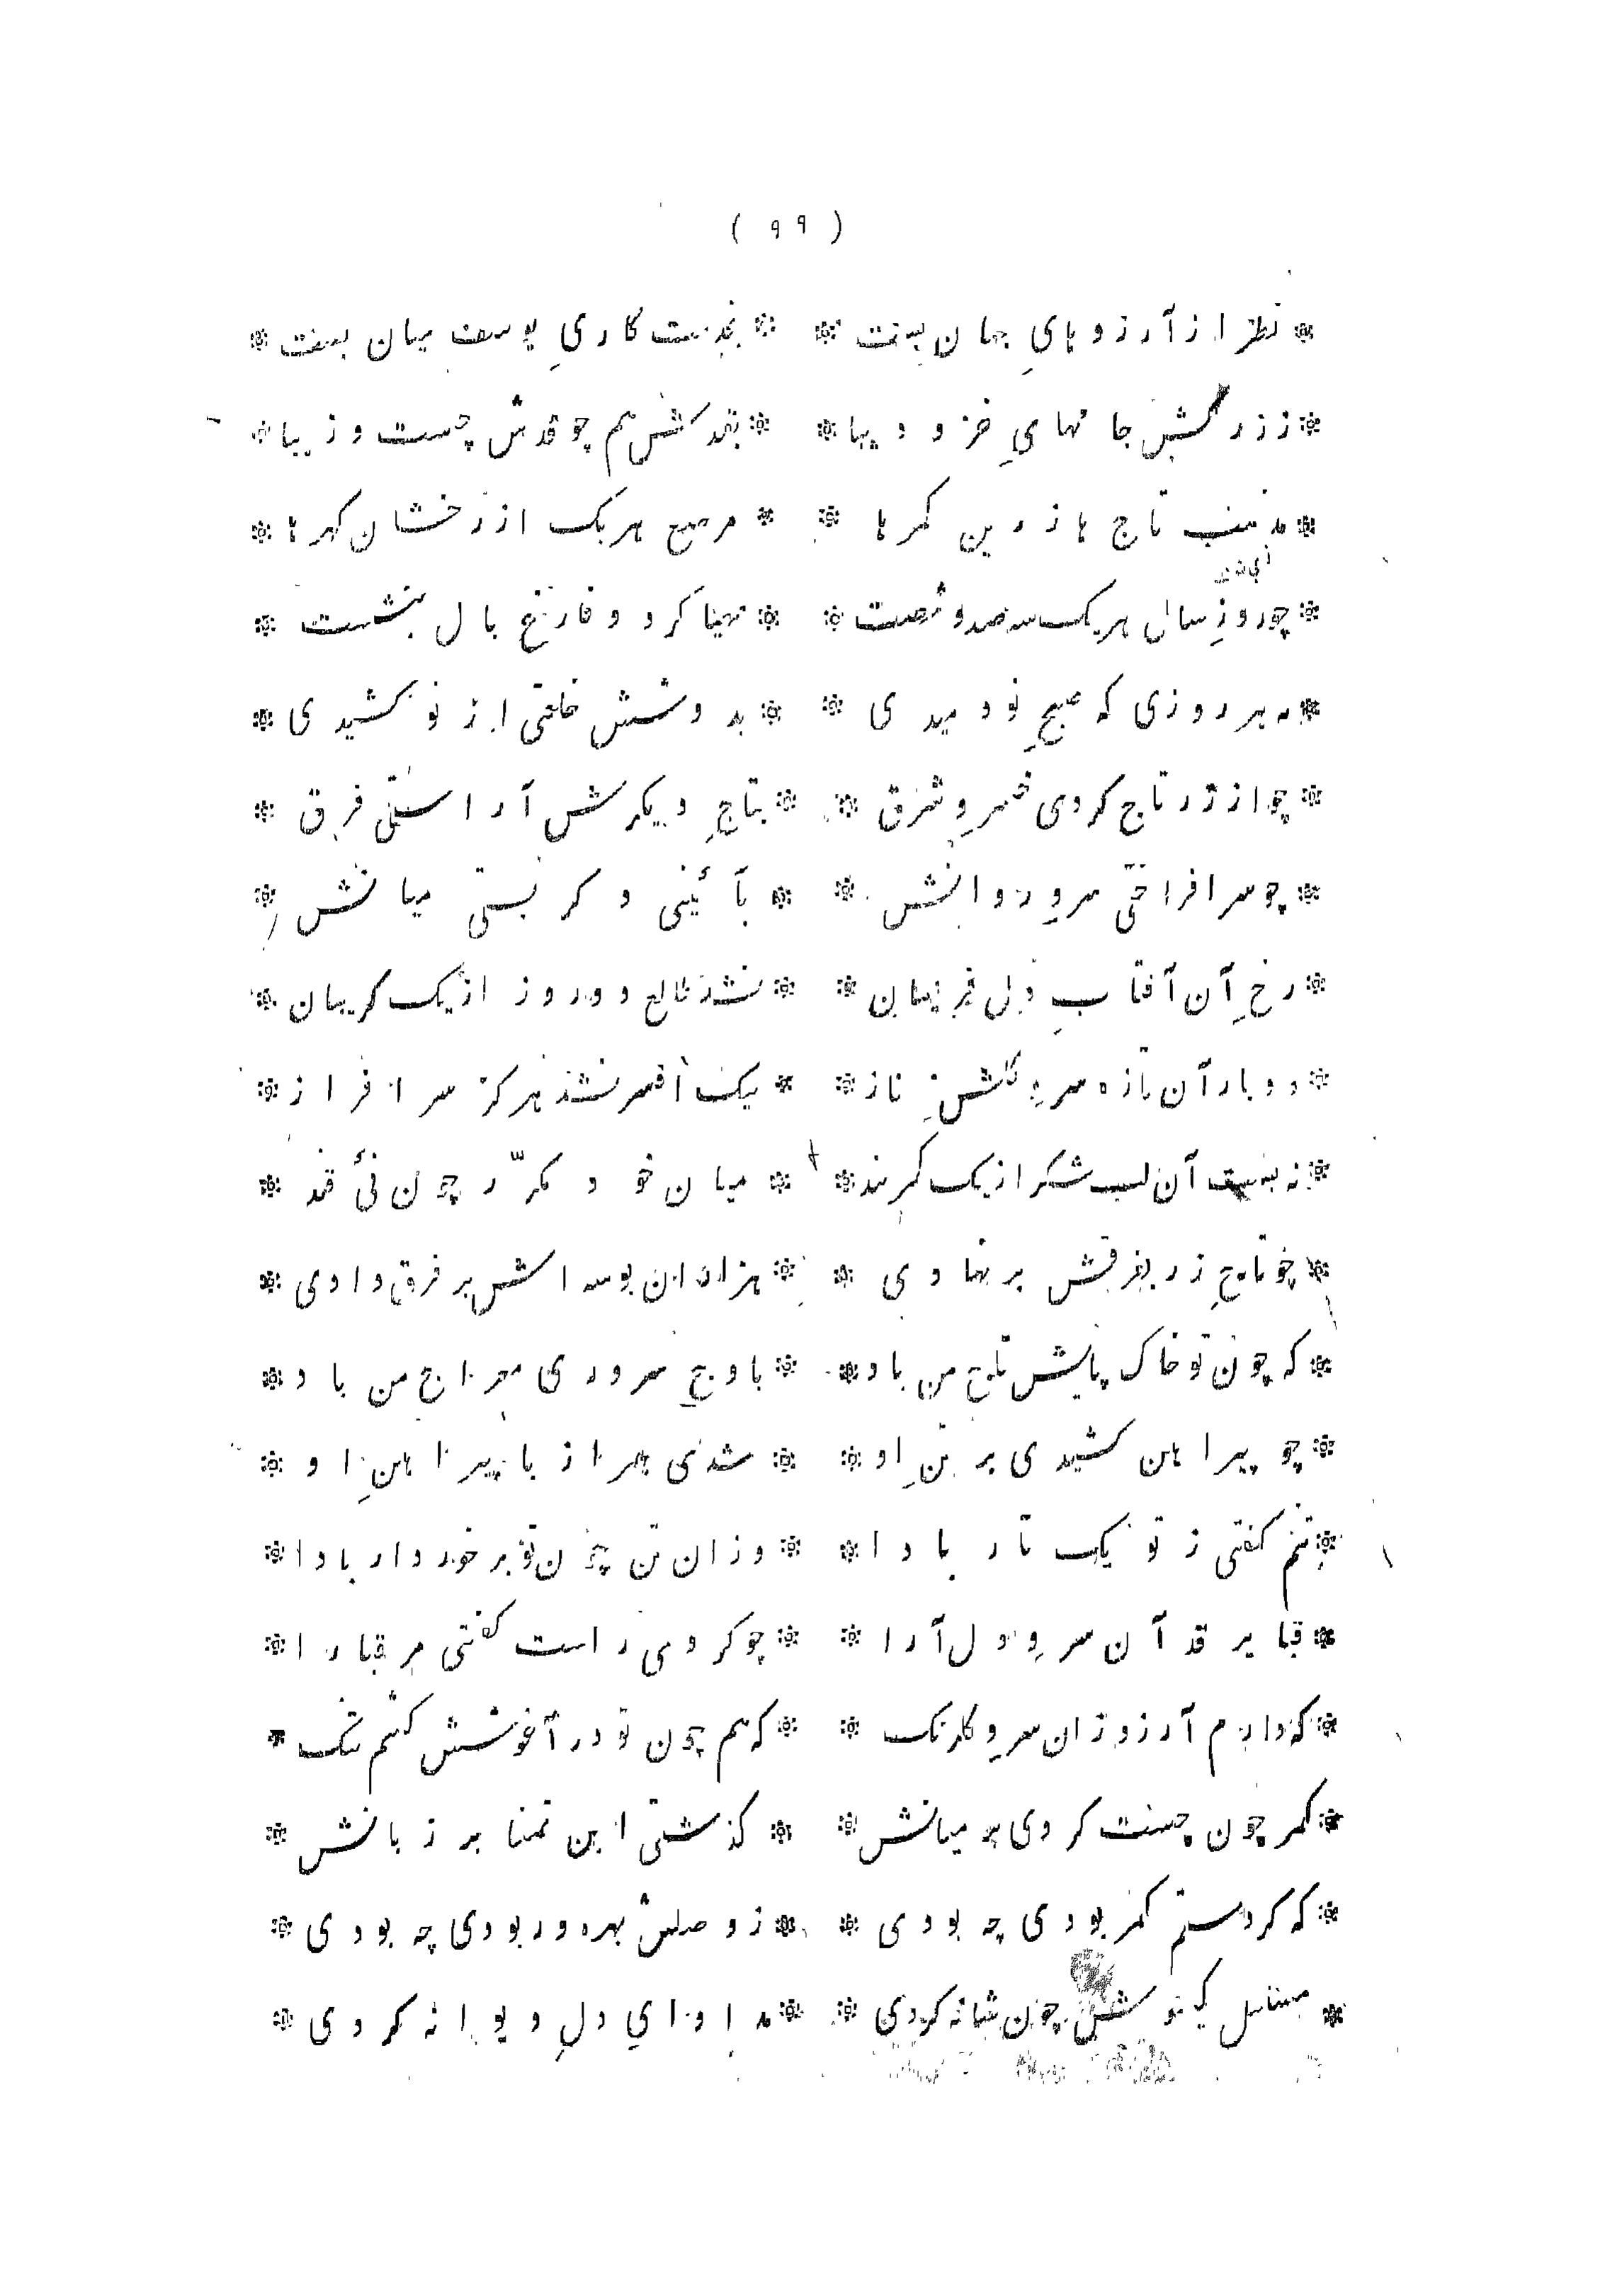 ( ۹۹ )
* نظر از آرزوهایِ جهان بست * * بخدمت کاریِ یوسف میان بست *
* ز زرکش جامهایِ خز و دیبا * * بقد کش هم چو قدش چست و زیبا *
* مذهب تاج ها زرین کمرها * * مرصع هریک از رخشان گهرها *
* چو روزِ سال هریک سه صد و شصت * * مهیا کرد و فارغ بال بنشست *
* به هر روزی که صبحِ نو دمیدی * * بدوشش خلعتی از نو کشیدی *
* چو از زر تاج کردی خسروِ شرق * * بتاجِ دیگرش آراستی فرق *
* چو سر افراختی سروِ روانش * * بآئینی دگر بستی میانش *
* رخِ آن آفتابِ دل فریبان * * نشد طالع دو روز از یک گریبان *
* دو بار آن تازه سروِ گلشنِ ناز * * بیک افسر نشد هرگز سرافراز *
* نه بست آن لب شکر از یک کمربند * * میان خود مکرّر چون نیٔ قند *
* چو تاجِ زر بفرقش برنهادی * * هزاران بوسه اش بر فرق دادی *
* که چون تو خاک پایش تاج من باد * * باوجِ سروری معراج من باد *
* چو پیراهن کشیدی بر تنِ او * * شدی همراز با پیراهنِ او *
* تنم گفتی ز تو یک تار بادا * * وزان تن چون تو برخوردار بادا *
* قبا بر قد آن سروِ دل آرا * * چو کردی راست گفتی مر قبا را *
* که دارم آرزو زان سروِ گلرنگ * * که هم چون تو در آغوشش کشم تنگ *
* کمر چون چست کردی بر میانش * * گذشتی این تمنا بر زبانش *
* که گر دستم کمر بودی چه بودی * * ز وصلش بهره ور بودی چه بودی *
* مسلسل گیسوشش چون شانه کردی * * مداوایِ دلِ دیوانه کردی *